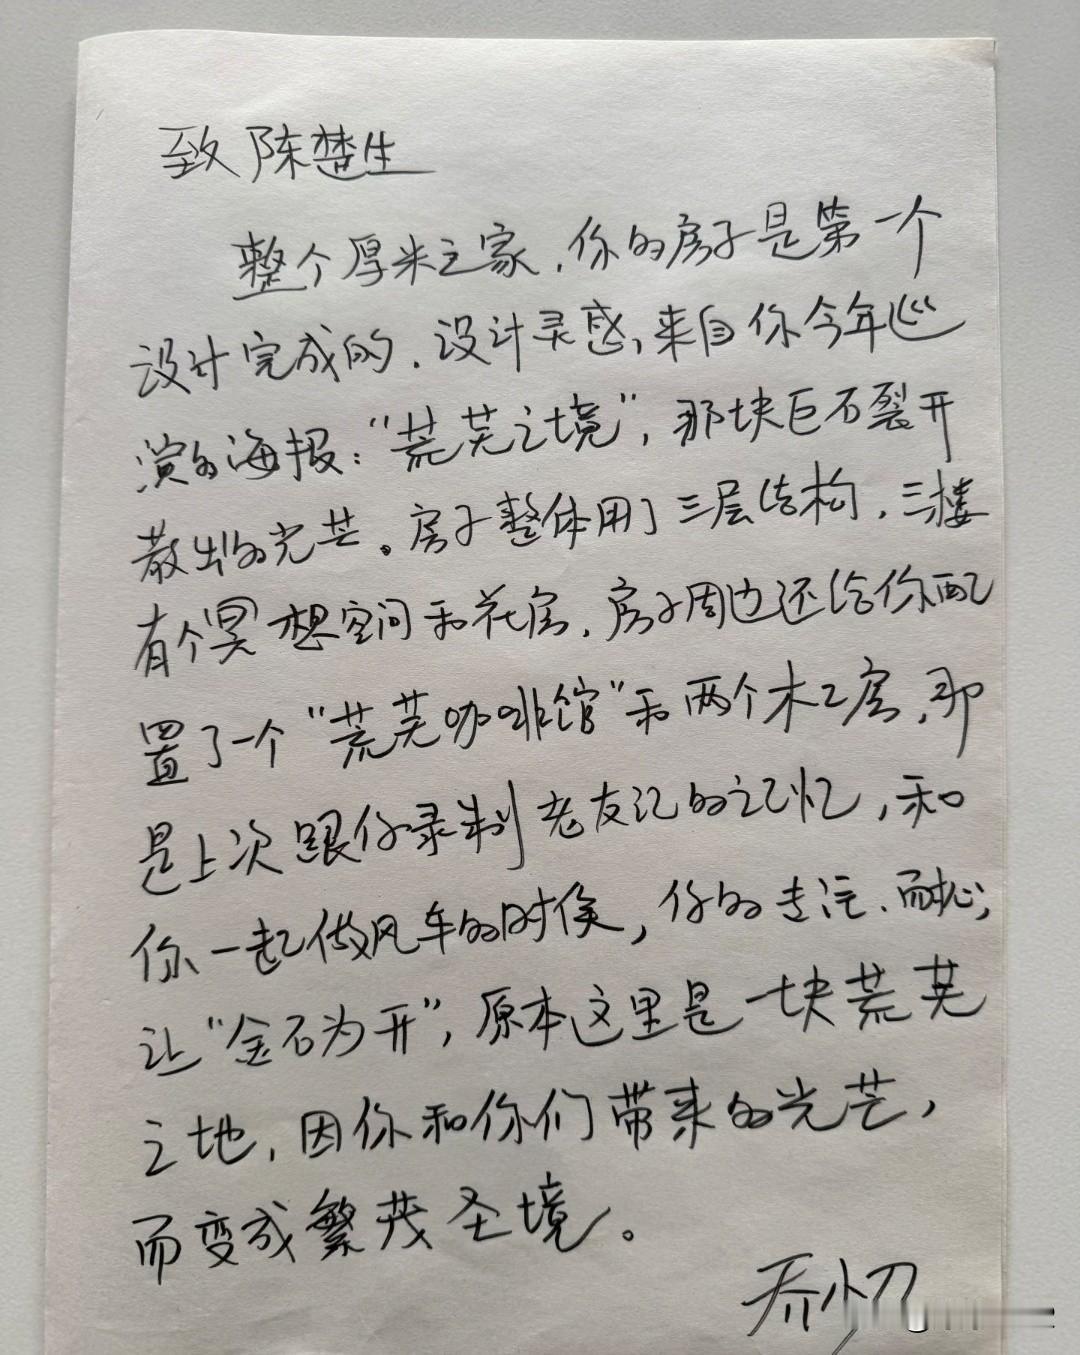 致陈楚生
整个厚米之家，你的房子是第一个
设计完成的，设计灵感，来自你今年巡
演的海报：“荒芜之境”，那块巨石裂开
散出的光芒。房子整体用了三层结构，三楼
有个冥想空间和花房，房子周边还给你配
置了一个“荒芜咖啡馆”和两个木工房，那
是上次跟你录制老友记的记忆，和
你一起做风车的时候，你的专注、耐心，
让“金石为开”，原本这里是一块荒芜
之地，因你和你们带来的光芒，
而变成繁茂圣境。
乔小刀